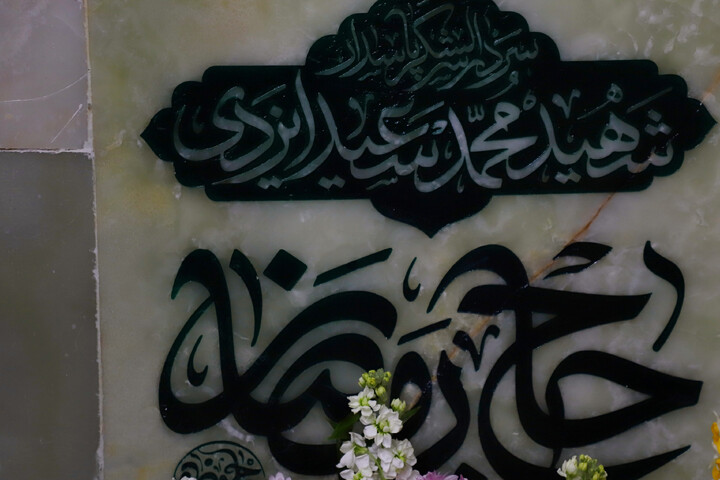 سردار سرلشکر پاسدار
شهید محمد سعید ایزدی
حاج رمضان